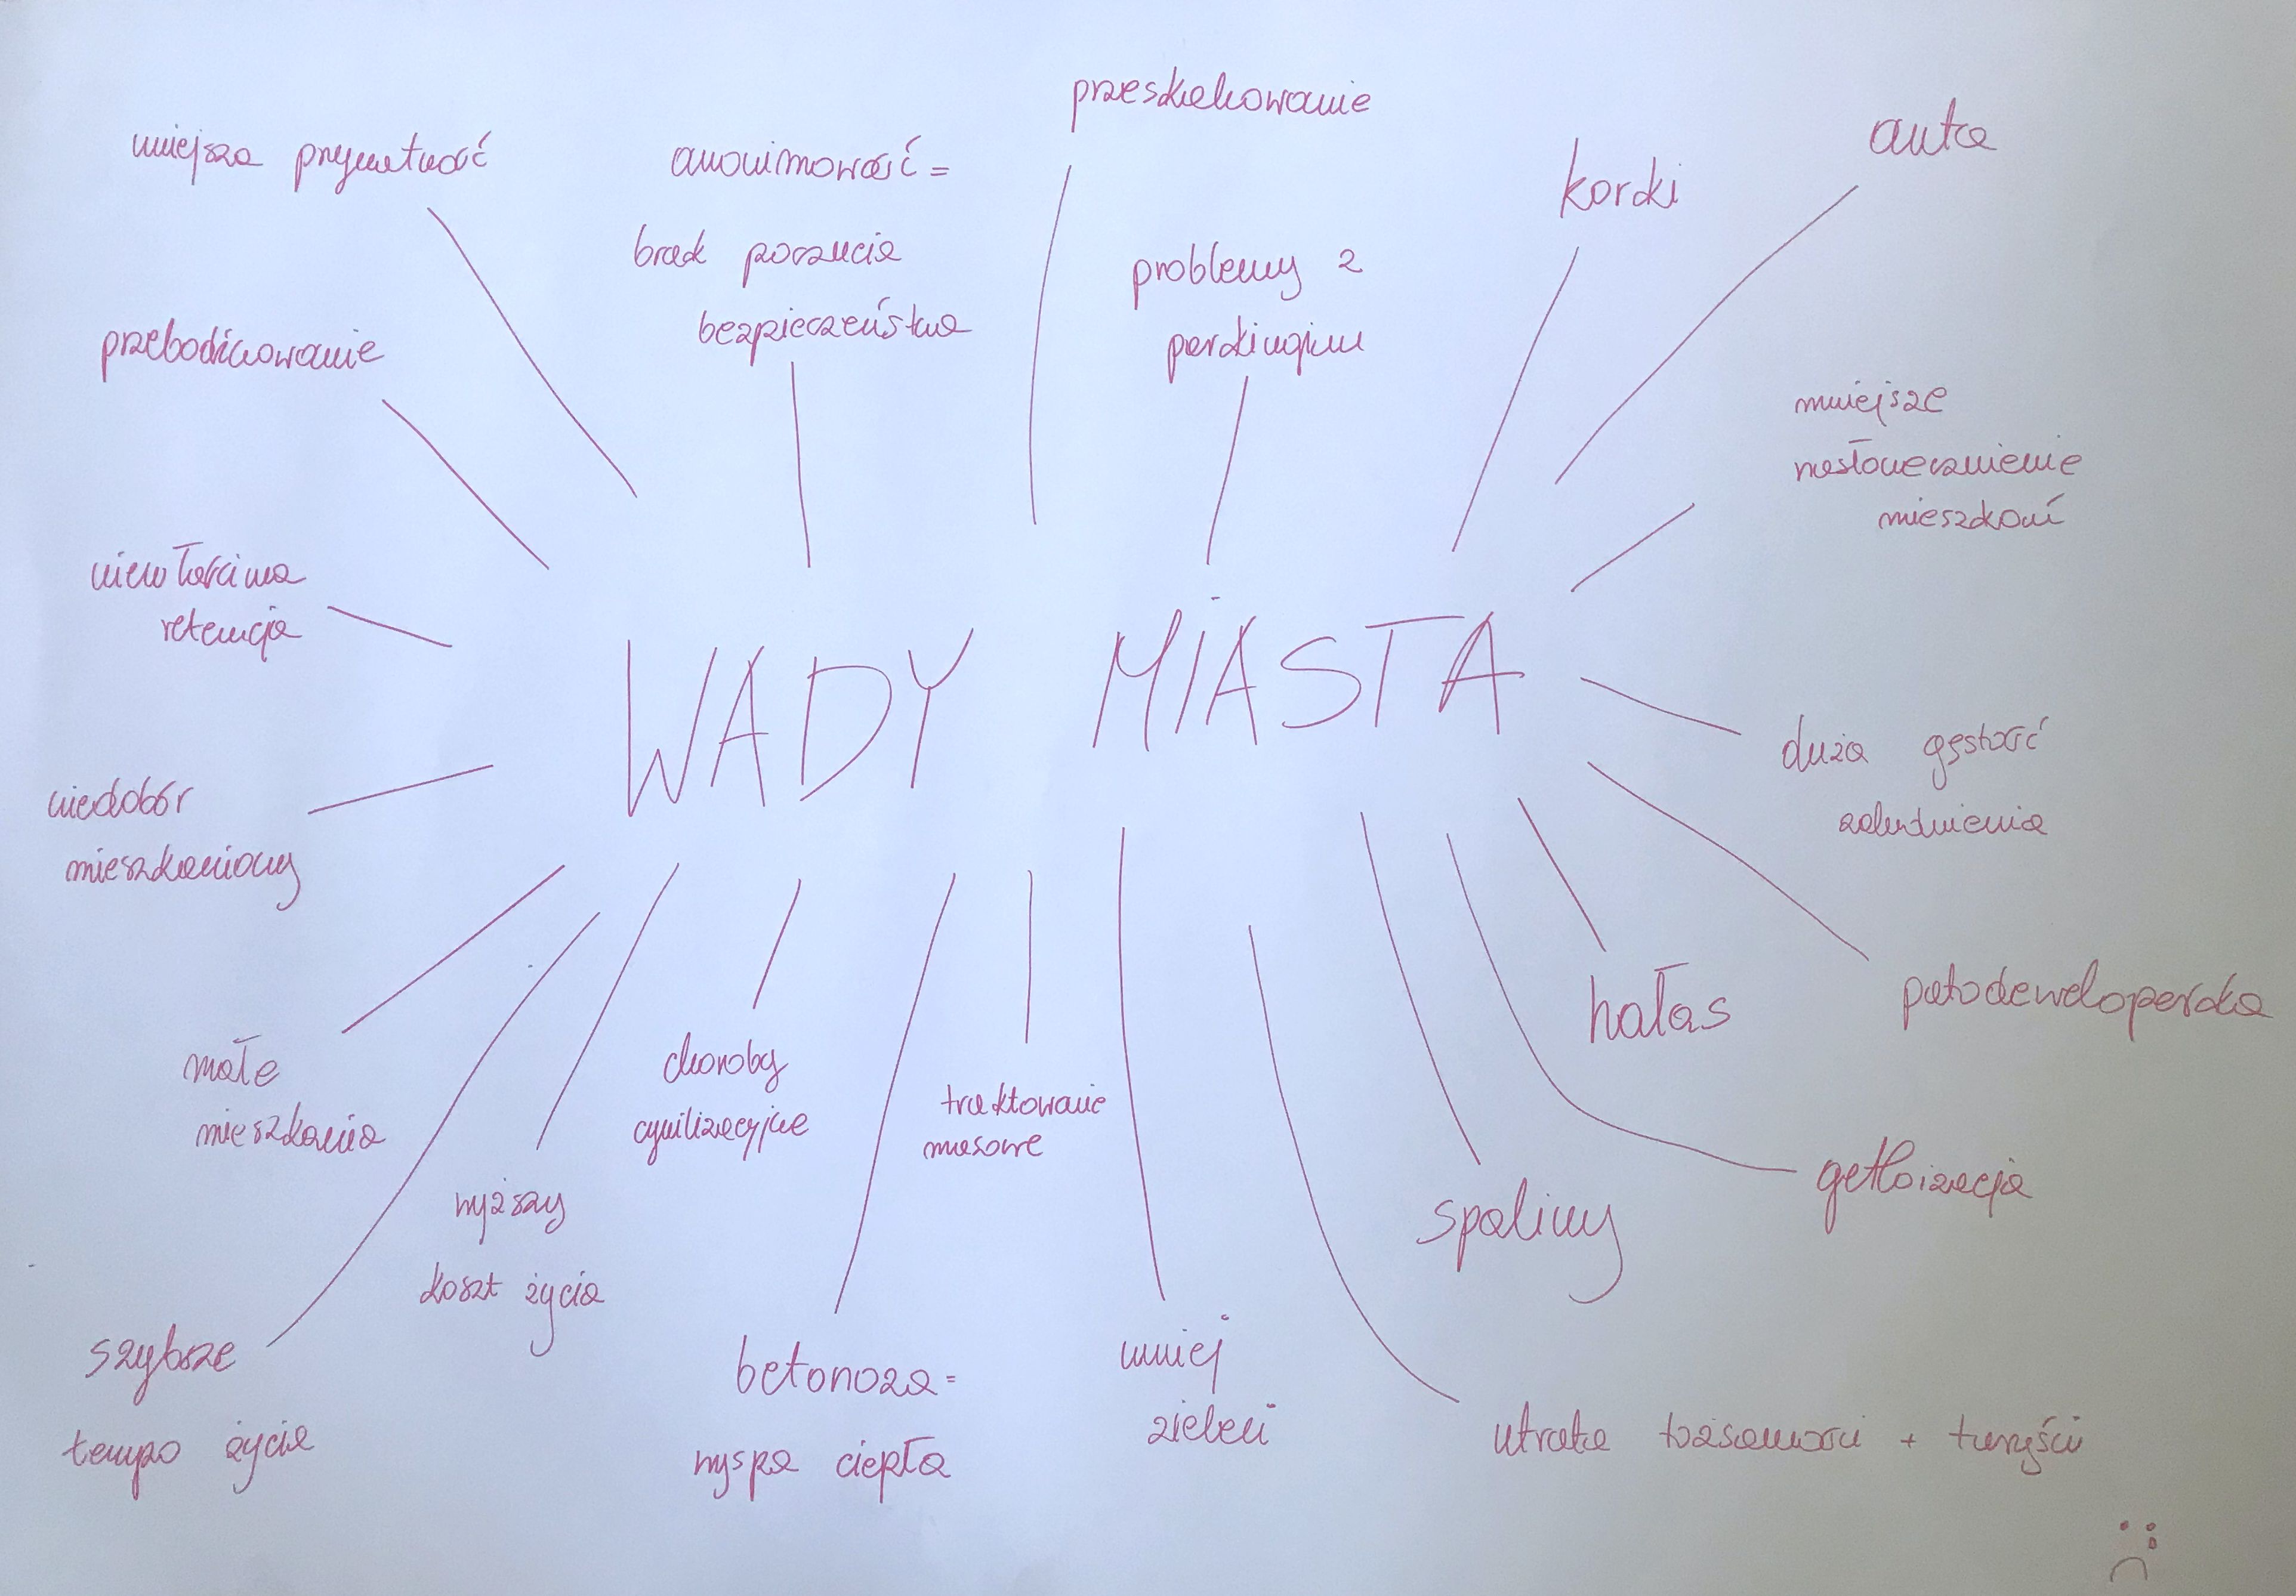 mniejsza prywatność
anonimowość =
brak poczucia
bezpieczeństwa
przeskalowanie
problemy z
parkingiem
korki
auta
przebodźcowanie
mniejsze
nasłonecznienie
mieszkań
niewłaściwa
retencja
WADY MIASTA
duża gęstość
zaludnienia
niedobór
mieszkaniowy
patodeweloperka
hałas
małe
mieszkania
choroby
cywilizacyjne
traktowanie
masowe
gettoizacja
spaliny
wyższy
koszt życia
szybsze
tempo życia
betonoza =
wyspa ciepła
mniej
zieleni
utrata tożsamości + turyści